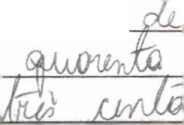 de
quarenta
três cento